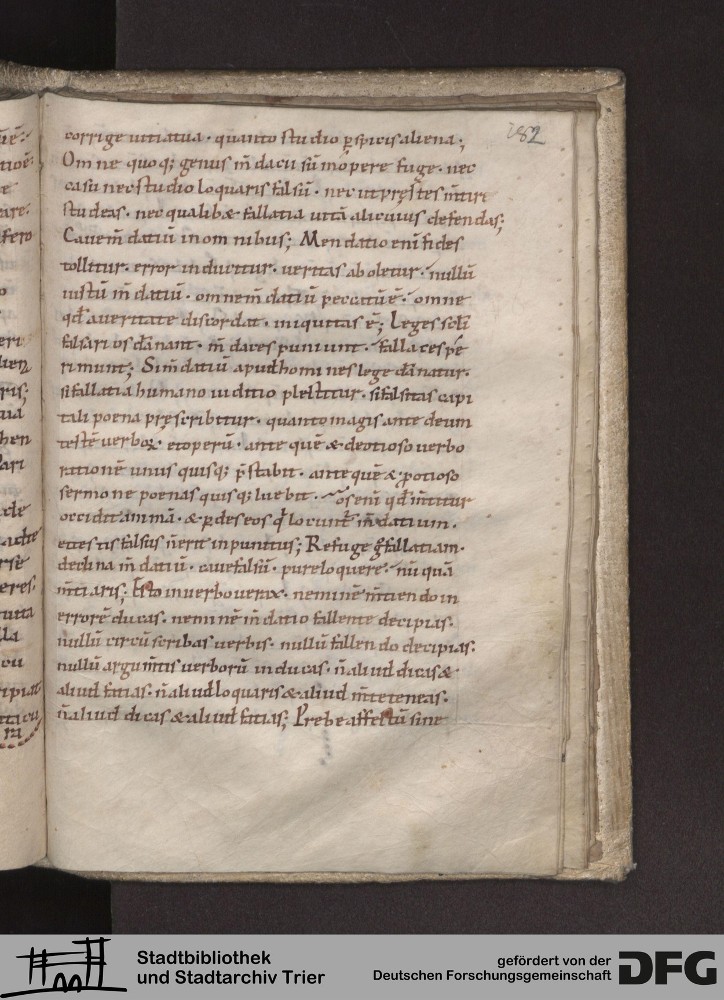 182
corrige uitia tua · quanto studio p̱spicis aliena ;
Omne quoq; genus m̄dacii sūmoꝑe fuge · nec
casu nec studio loquaris falsū · nec ut pręstes m̄tiri
studeas · nec qualibꝫ fallatia uitā alicuius defendas ;
Caue m̄datiū in omnibus ; Mendatio eni fides
tollitur · error inducitur · ueritas aboletur · nullū
iustū m̄datiū · omne m̄datiū peccatū ē · omne
qđ a ueritate discordat · iniquitas ē ; Leges secli
falsarios dānant · m̄daces puniunt · fallaces pe
rimunt ; Si m̄datiū apud homines lege dānatur ·
si fallatia humano iuditio plectitur · si falsitas capi
tali poena pręscribitur · quanto magis ante deum
testē uerboꝝ · et operū · ante quē & de otioso uerbo
rationē unusquisq; p̄stabit · ante quē & ꝓ otioso
sermone poenas quisq; luebit ·
occidit animā · & ꝑdes eos q̇ locunt m̄datium ·
et testis falsus n̄ erit inpunitus ; Refuge g̊ fallatiam ·
declina m̄datiū · caue falsū · pure loquere · nūquā
m̄tiaris ; Esto in uerbo uerax · neminē m̄tiendo in
errorē ducas · neminē m̄datio fallente decipias ·
nullū circūscribas uerbis · nullū fallendo decipias ·
nullū argum̄tis uerborū inducas · n̄ aliud dicas &
aliud facias · n̄ aliud loquaris & aliud m̄te teneas ·
n̄ aliud dicas & aliud facias ; Prebe affectū sine
Stadtbibliothek
und Stadtarchiv Trier
gefördert von der
Deutschen Forschungsgemeinschaft
DFG